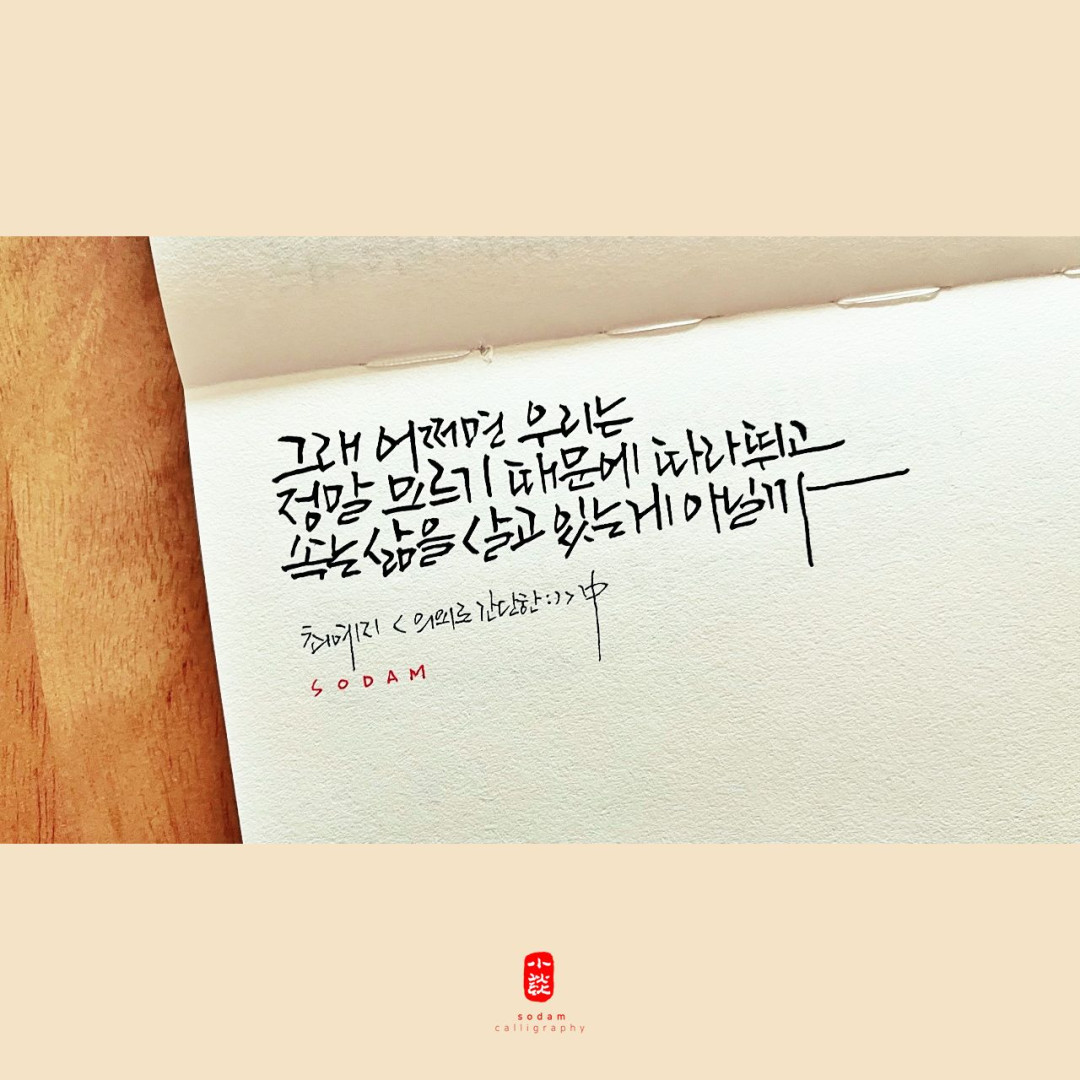 그래 어쩌면 우리는
정말 모르기 때문에 따라뛰고
속는 삶을 살고 있는게 아닐까
최예지 <의외로 간단한:)> 中
SODAM
小談
sodam
calligraphy